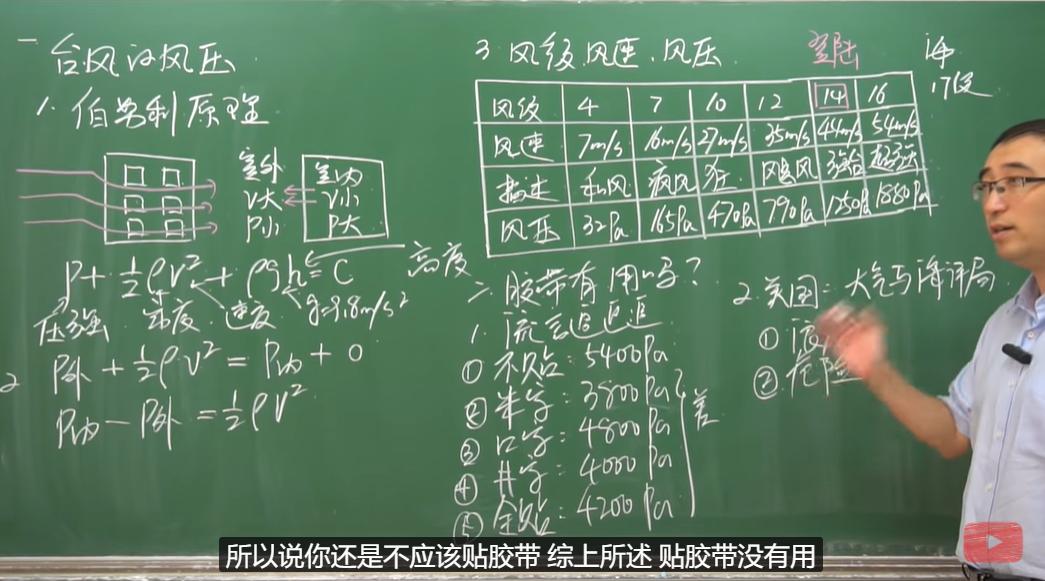 一 台风的风压
1. 伯努利原理
室外
V大
P小
室内
V小
P大
P + ½ρV² + ρgh = C
高度
压强 密度 速度 g=9.8m/s²
2
P外 + ½ρV² = P内 + 0
P内 - P外 = ½ρV²
3. 风级、风速、风压
登陆
17级
风级 4 7 10 12 14 16
风速 7m/s 16m/s 27m/s 35m/s 44m/s 54m/s
描述 和风 疾风 狂 飓风 强台 超强
风压 32Pa 165Pa 470Pa 790Pa 1250Pa 1880Pa
二. 胶带有用吗?
1. 流言追追追
① 不贴: 5400Pa
② 米字: 3800Pa
③ 口字: 4800Pa
④ 井字: 4000Pa
⑤ 全贴: 4200Pa
差
2. 美国: 大气与海洋局
①
② 危险
所以说你还是不应该贴胶带 综上所述 贴胶带没有用